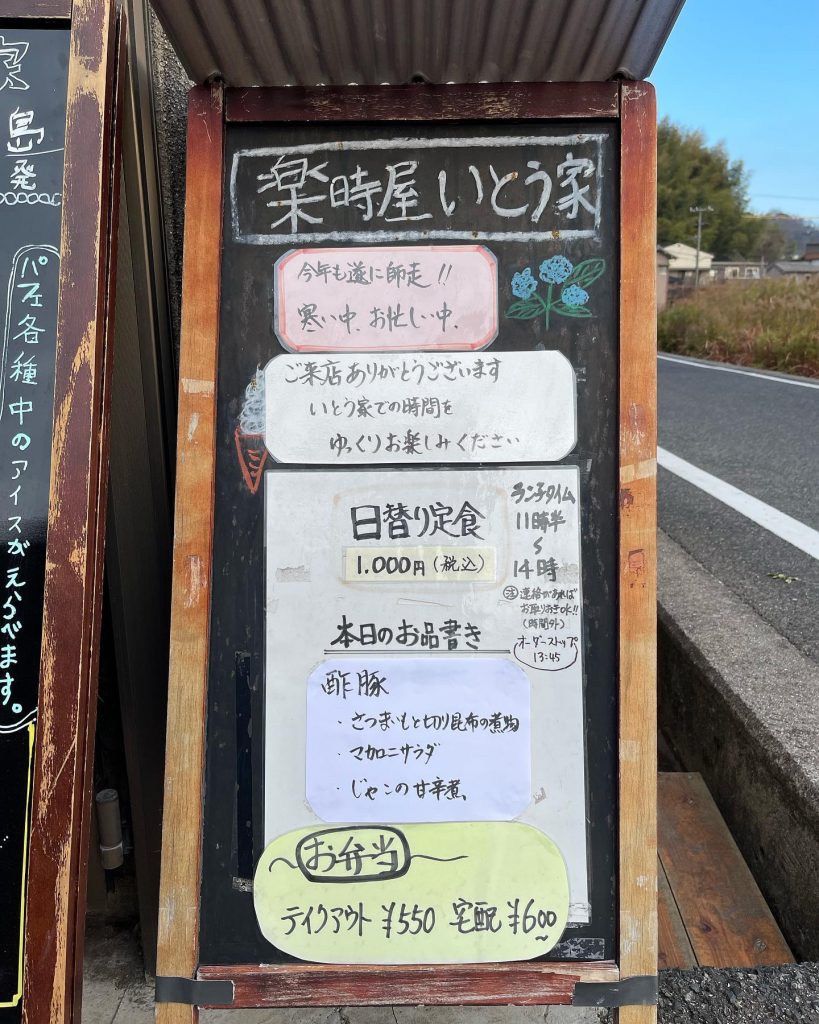 島発
パフェ各種中のアイスがえらべます。
楽時屋 いとう家
今年も遂に師走!!
寒い中、お忙しい中、
ご来店ありがとうございます
いとう家での時間を
ゆっくりお楽しみください
日替り定食
1.000円(税込)
ランチタイム
11時半
〜
14時
注 連絡があれば
お取りおきOK!!
(時間外)
オーダーストップ
13:45
本日のお品書き
酢豚
・さつまいもと切り昆布の煮物
・マカロニサラダ
・じゃこの甘辛煮
お弁当
テイクアウト ¥550 宅配 ¥600